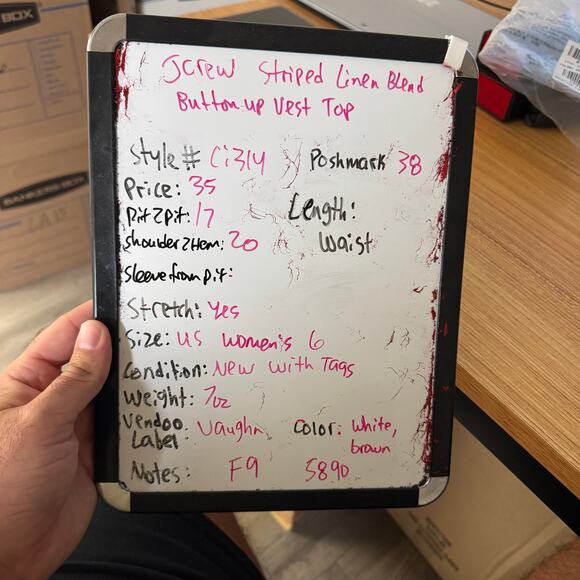 JCrew Striped Linen Blend
Button up Vest Top
Style # Ci314 Poshmark 38
Price: 35
Pit 2 pit: 17 Length:
Shoulder 2 Hem: 20 Waist
Sleeve from Pit:
Stretch: Yes
Size: US Women's 6
Condition: New With Tags
Weight: 7oz
Vendoo
Label: Vaughn Color: White,
brown
Notes: F9 5890
BOX
BANKERS BOX